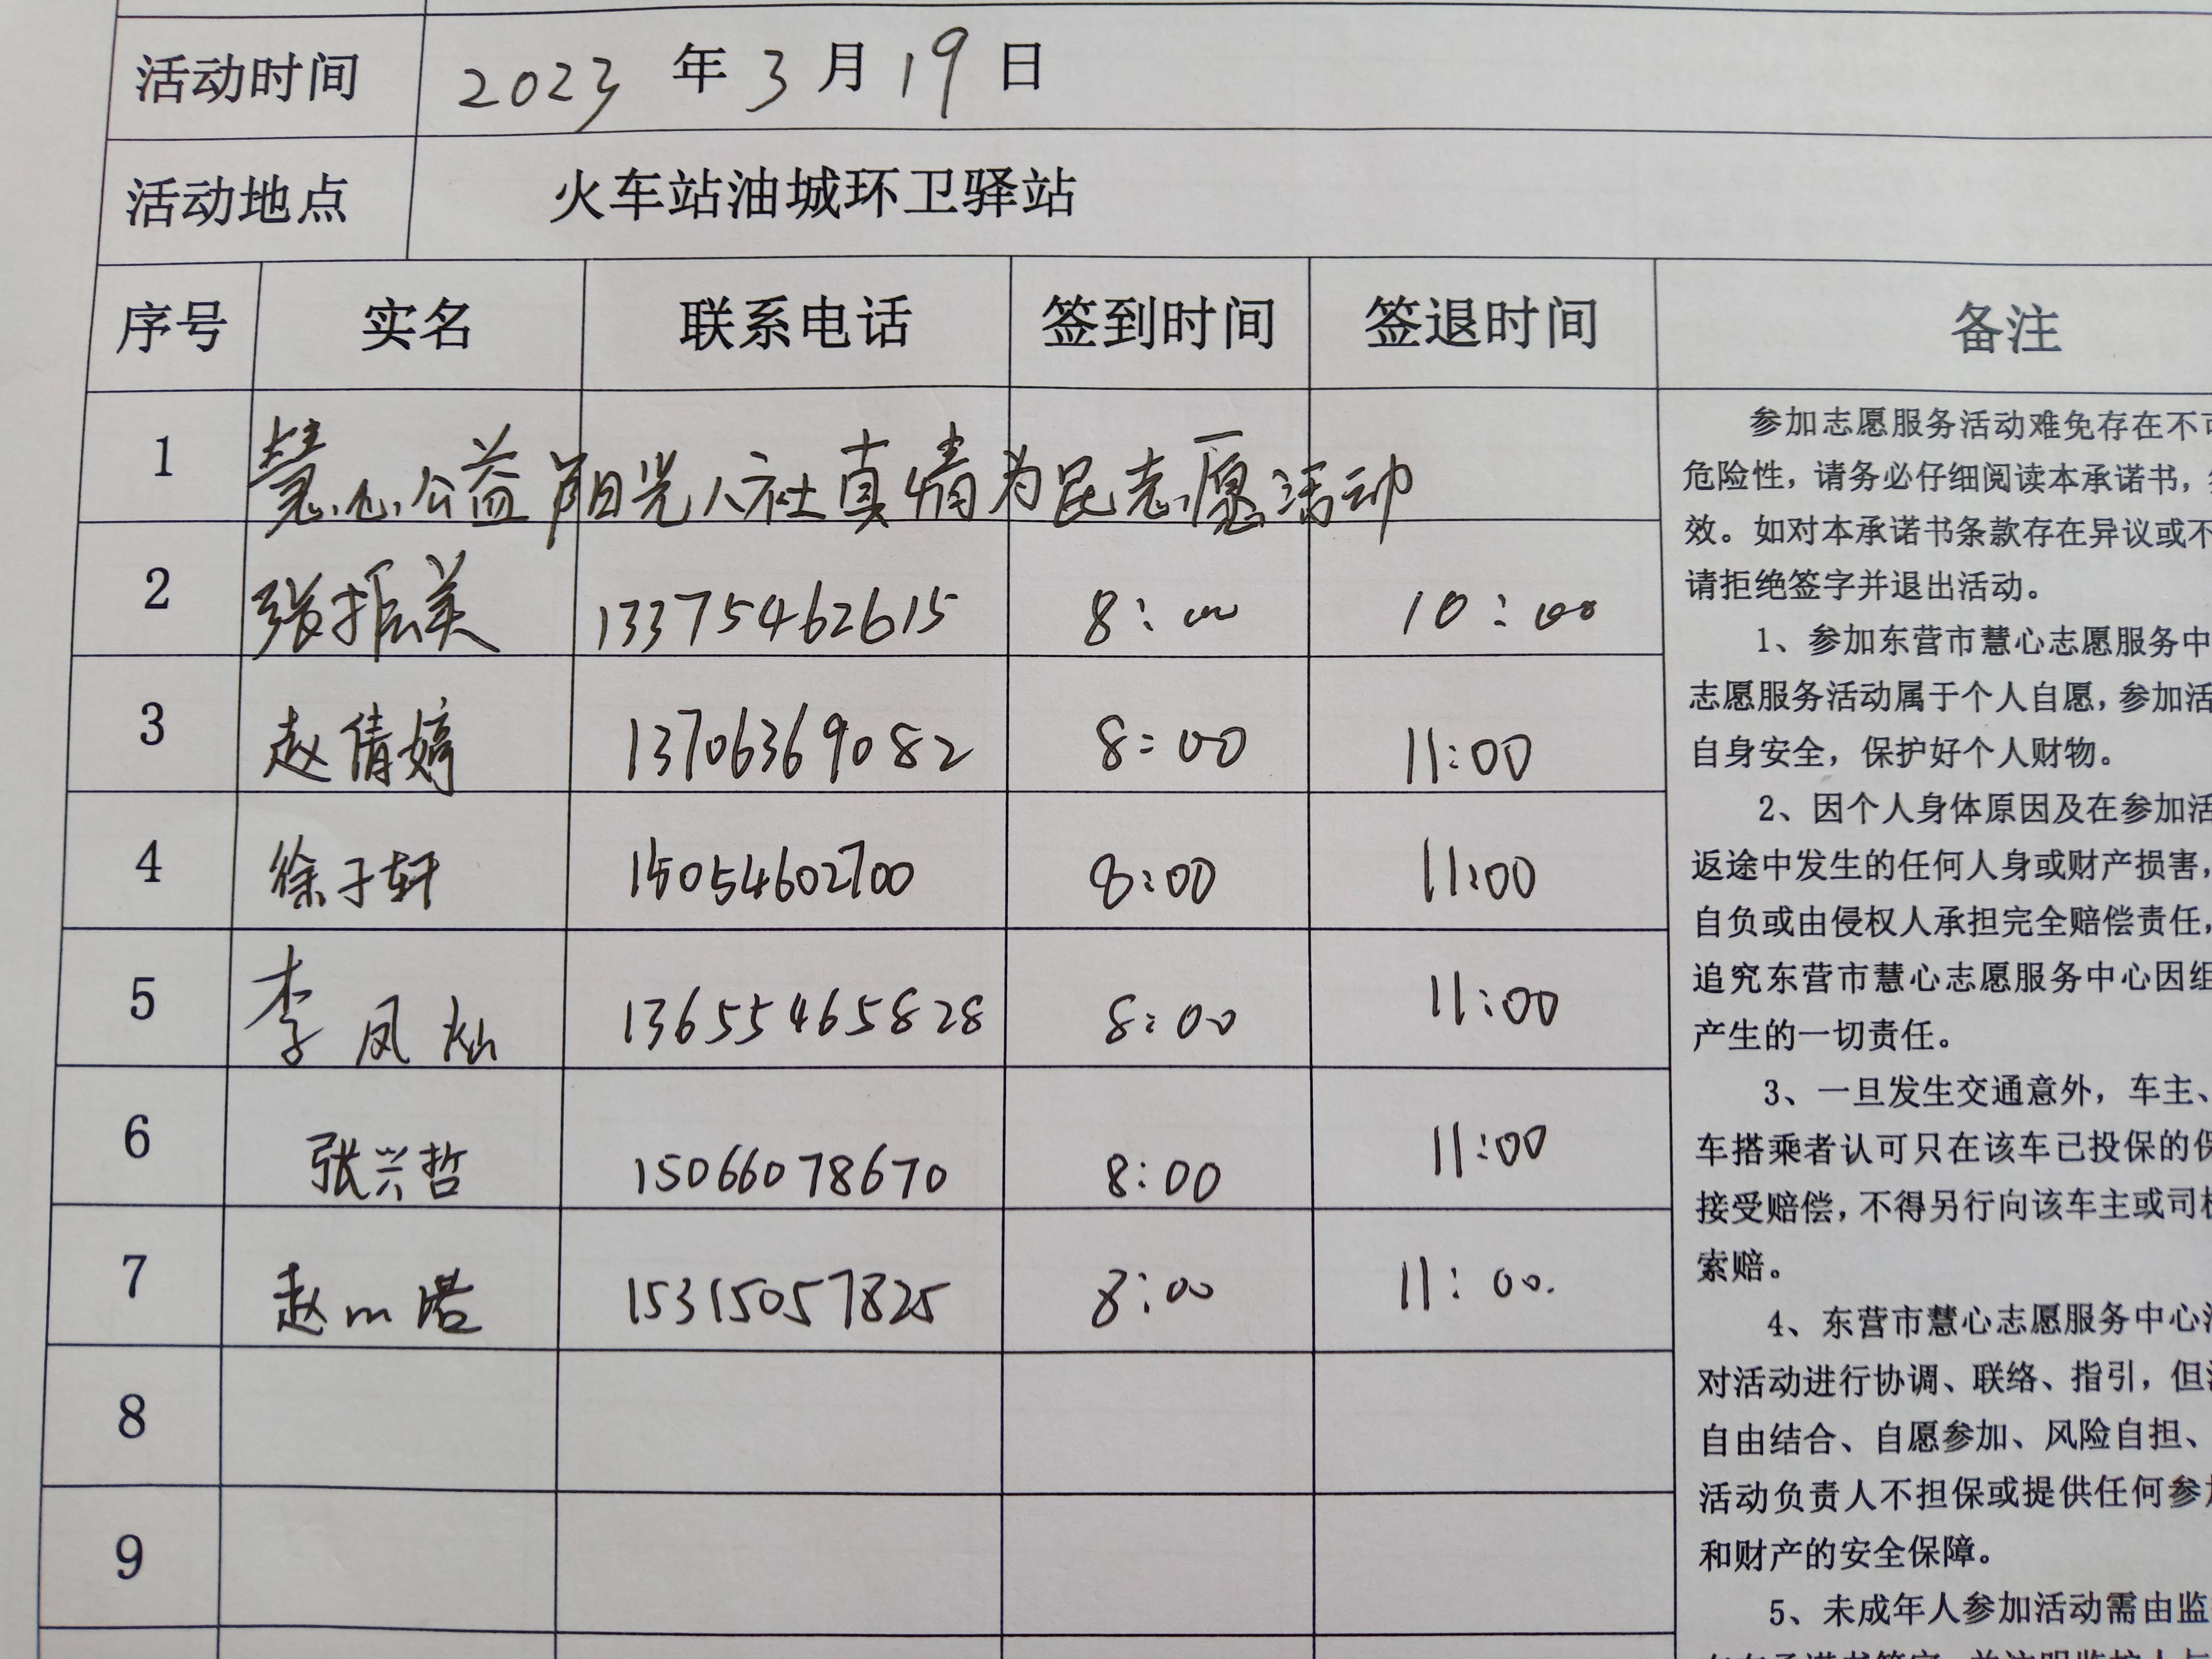 活动时间 2023 年 3 月 19 日
活动地点 火车站油城环卫驿站
序号 实名 联系电话 签到时间 签退时间 备注
1 慧心公益 阳光人社真情为民志愿活动
2 张振美 13375462615 8:00 10:00
3 赵倩婷 13706369082 8:00 11:00
4 徐子轩 15054602700 8:00 11:00
5 李凤灿 13655465828 8:00 11:00
6 张兴哲 15066078670 8:00 11:00
7 赵 15315057825 8:00 11:00.
8
9
参加志愿服务活动难免存在不
危险性，请务必仔细阅读本承诺书，
效。如对本承诺书条款存在异议或不
请拒绝签字并退出活动。
1、参加东营市慧心志愿服务中
志愿服务活动属于个人自愿，参加活
自身安全，保护好个人财物。
2、因个人身体原因及在参加活
返途中发生的任何人身或财产损害，
自负或由侵权人承担完全赔偿责任，
追究东营市慧心志愿服务中心因组
产生的一切责任。
3、一旦发生交通意外，车主、
车搭乘者认可只在该车已投保的保
接受赔偿，不得另行向该车主或司机
索赔。
4、东营市慧心志愿服务中心
对活动进行协调、联络、指引，但
自由结合、自愿参加、风险自担、
活动负责人不担保或提供任何参加
和财产的安全保障。
5、未成年人参加活动需由监